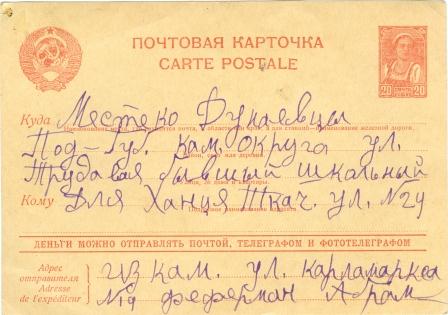 ПОЧТОВАЯ КАРТОЧКА
CARTE POSTALE
20 20
Куда Местеко Дунаевци
Под-Губ. Кам. Округа ул.
Трудавая бывший шкальный
Кому Для Ханця Ткач. ул. №24
ДЕНЬГИ МОЖНО ОТПРАВЛЯТЬ ПОЧТОЙ, ТЕЛЕГРАФОМ И ФОТОТЕЛЕГРАФОМ
Адрес отправителя
Adresse de l'expéditeur
из Кам. ул. Карламаркса
№19 Феферман Абрам